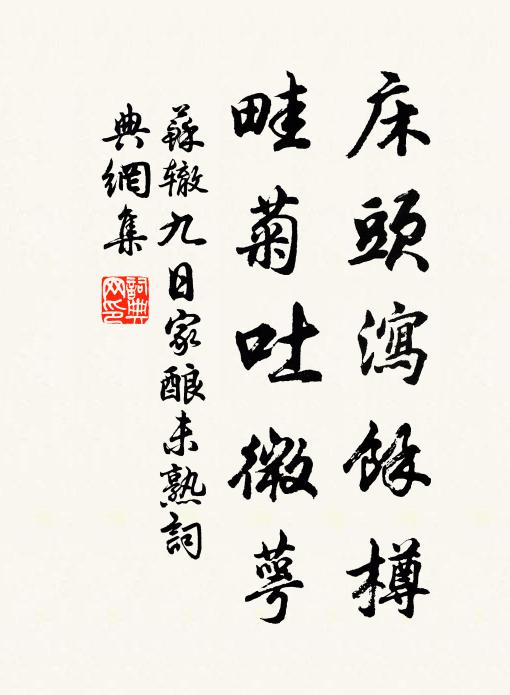 床頭瀉餘樽
畦菊吐微萼
蘇辙九日家酿未熟詞
典網集
詞典
网印